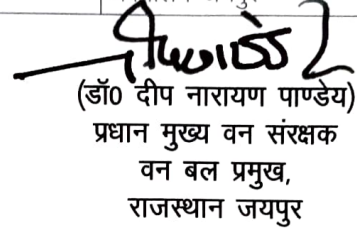 (डॉ0 दीप नारायण पाण्डेय)
प्रधान मुख्य वन संरक्षक
वन बल प्रमुख,
राजस्थान जयपुर